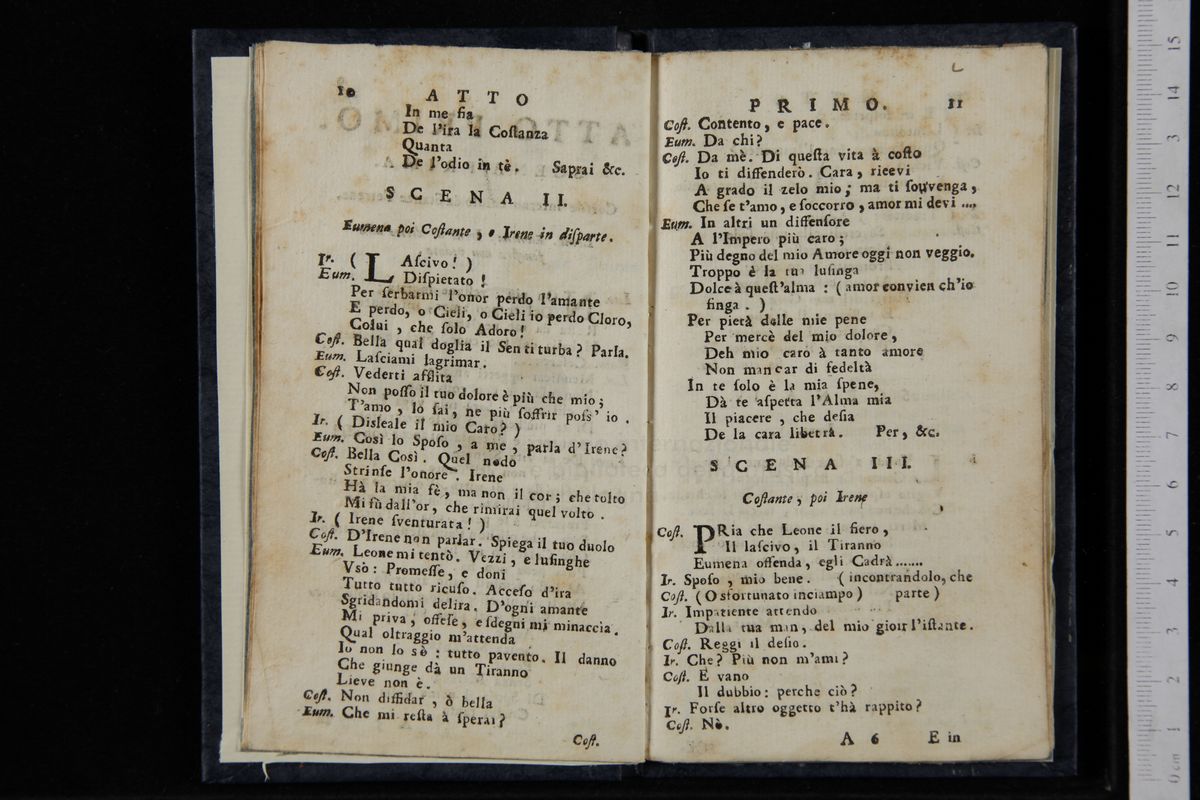 10 ATTO
In me sia
De l'ira la Costanza
Quanta
De l'odio in tè. Saprai &c.
SCENA II.
Eumena poi Costante, e Irene in disparte.
Ir. ( LAscivo! )
Eum. Dispietato!
Per serbarmi l'onor perdo l'amante
E perdo, o Cieli, o Cieli io perdo Cloro,
Colui, che solo Adoro!
Cost. Bella qual doglia il Sen ti turba? Parla.
Eum. Lasciami lagrimar.
Cost. Vederti afflita
Non posso il tuo dolore è più che mio;
T'amo, lo sai, ne più soffrir poss' io.
Ir. ( Disleale il mio Caro? )
Eum. Così lo Sposo, a me, parla d'Irene?
Cost. Bella Così. Quel nodo
Strinse l'onore. Irene
Hà la mia fè, ma non il cor; che tolto
Mi fù dall'or, che rimirai quel volto.
Ir. ( Irene sventurata! )
Cost. D'Irene non parlar. Spiega il tuo duolo
Eum. Leone mi tentò. Vezzi, e lusinghe
Vsò: Promesse, e doni
Tutto tutto ricuso. Acceso d'ira
Sgridandomi delira. D'ogni amante
Mi priva, offese, e sdegni mi minaccia.
Qual oltraggio m'attenda
Io non lo sè: tutto pavento. Il danno
Che giunge dà un Tiranno
Lieve non è.
Cost. Non diffidar, ò bella
Eum. Che mi resta à sperar?
Cost.
PRIMO. 11
Cost. Contento, e pace.
Eum. Da chi?
Cost. Da mè. Di questa vita à costo
Io ti diffenderò. Cara, ricevi
A grado il zelo mio; ma ti sovvenga,
Che se t'amo, e soccorro, amor mi devi ....
Eum. In altri un diffensore
A l'Impero più caro;
Più degno del mio Amore oggi non veggio.
Troppo è la tua lusinga
Dolce à quest'alma : ( amor convien ch'io
finga. )
Per pietà delle mie pene
Per mercè del mio dolore,
Deh mio caro à tanto amore
Non mancar di fedeltà
In te solo è la mia spene,
Dà te aspetta l'Alma mia
Il piacere, che desia
De la cara libertà. Per, &c.
SCENA III.
Costante, poi Irene
Cost. PRia che Leone il fiero,
Il lascivo, il Tiranno
Eumena offenda, egli Cadrà.......
Ir. Sposo, mio bene. ( incontrandolo, che
Cost. ( O sfortunato inciampo ) parte )
Ir. Impatiente attendo
Dalla tua man, del mio gioir l'istante.
Cost. Reggi il desio.
Ir. Che? Più non m'ami?
Cost. E vano
Il dubbio: perche ciò?
Ir. Forse altro oggetto t'hà rappito?
Cost. Nò.
A 6 E in
15
14
13
12
11
10
9
8
7
6
5
4
3
2
1
0 cm